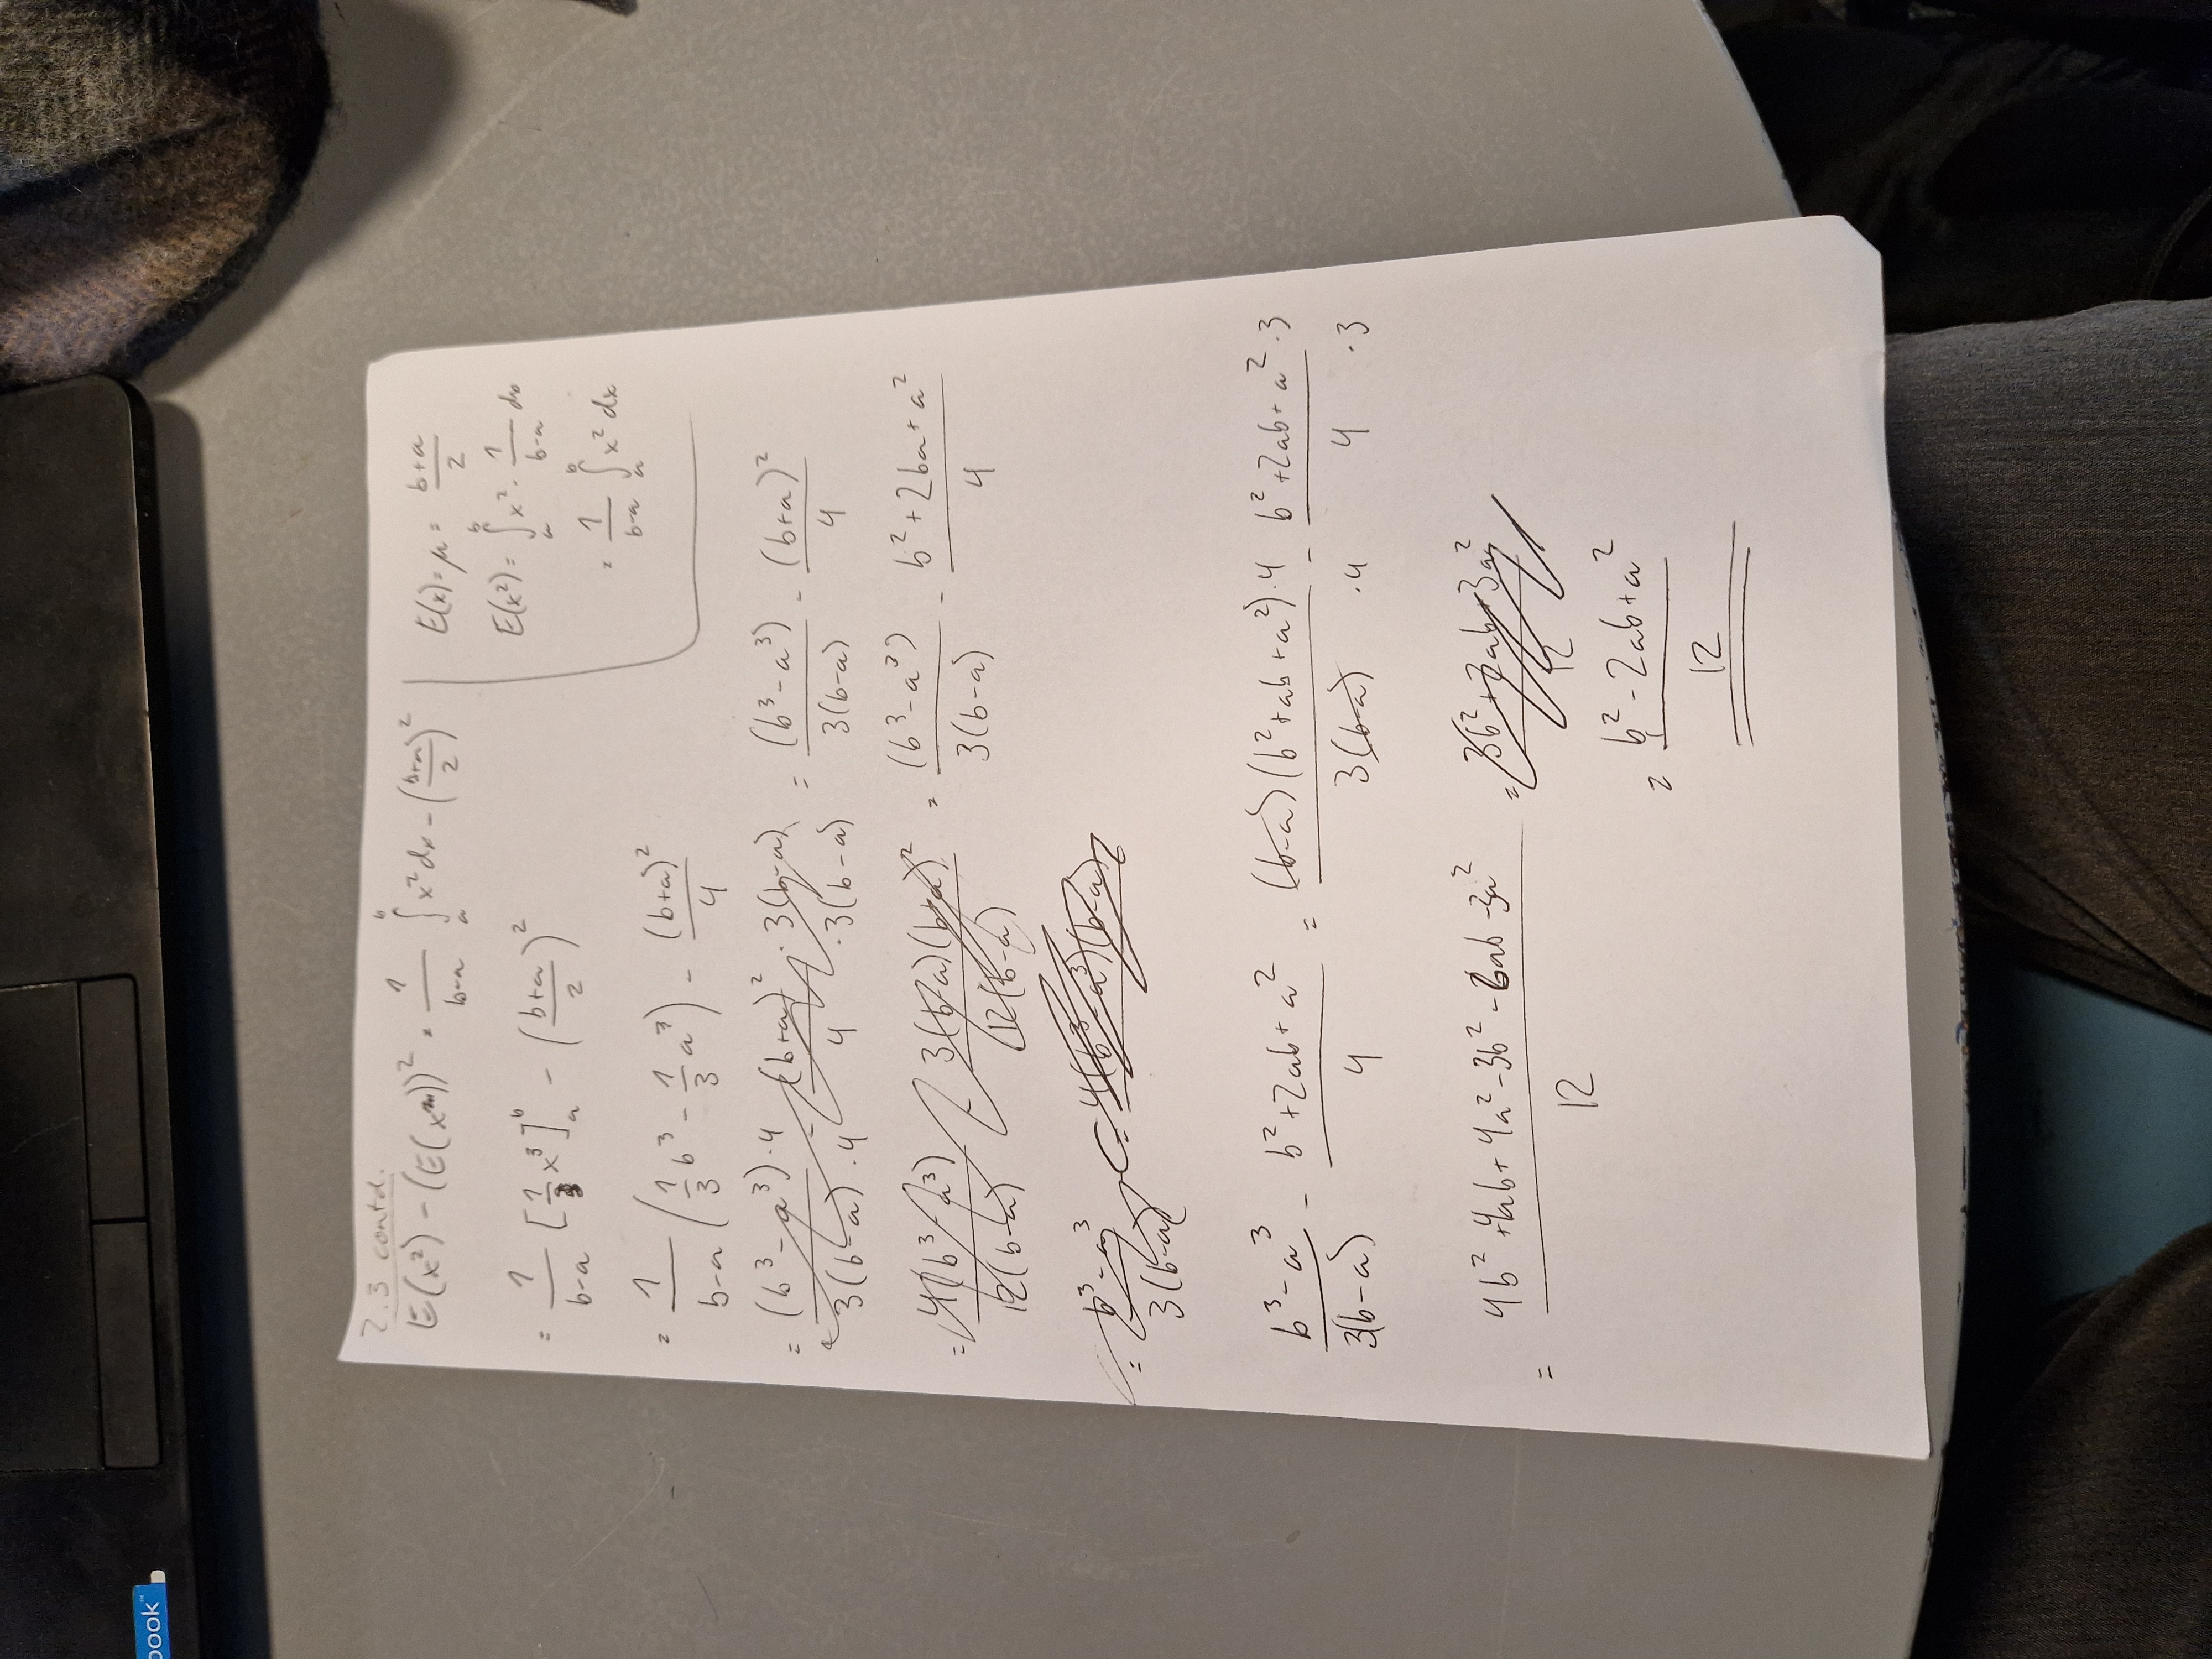 book™
2.3 contd.
E(x²) - (E(x))² = 1/(b-a) ∫ₐᵇ x² dx - ((b+a)/2)²
E(x) = μ = (b+a)/2
E(x²) = ∫ₐᵇ x² · 1/(b-a) dx
= 1/(b-a) ∫ₐᵇ x² dx
= 1/(b-a) [1/3 x³]ₐᵇ - ((b+a)/2)²
= 1/(b-a) (1/3 b³ - 1/3 a³) - (b+a)²/4
= (b³-a³)·4 / 3(b-a)·4 - (b+a)²·3(b-a) / 4·3(b-a) = (b³-a³)/3(b-a) - (b+a)²/4
= 4(b³-a³)/12(b-a) - 3(b-a)(b+a)²/12(b-a) = (b³-a³)/3(b-a) - (b²+2ba+a²)/4
= (b³-a³)/3(b-a) = 4(b³-a³)(b-a)
(b³-a³)/3(b-a) - (b²+2ab+a²)/4 = (b-a)(b²+ab+a²)·4 / 3(b-a)·4 - b²+2ab+a²·3 / 4·3
= (4b²+4ab+4a²-3b²-6ab-3a²)/12 = (3b²+2ab+3a²)/12
= (b²-2ab+a²)/12